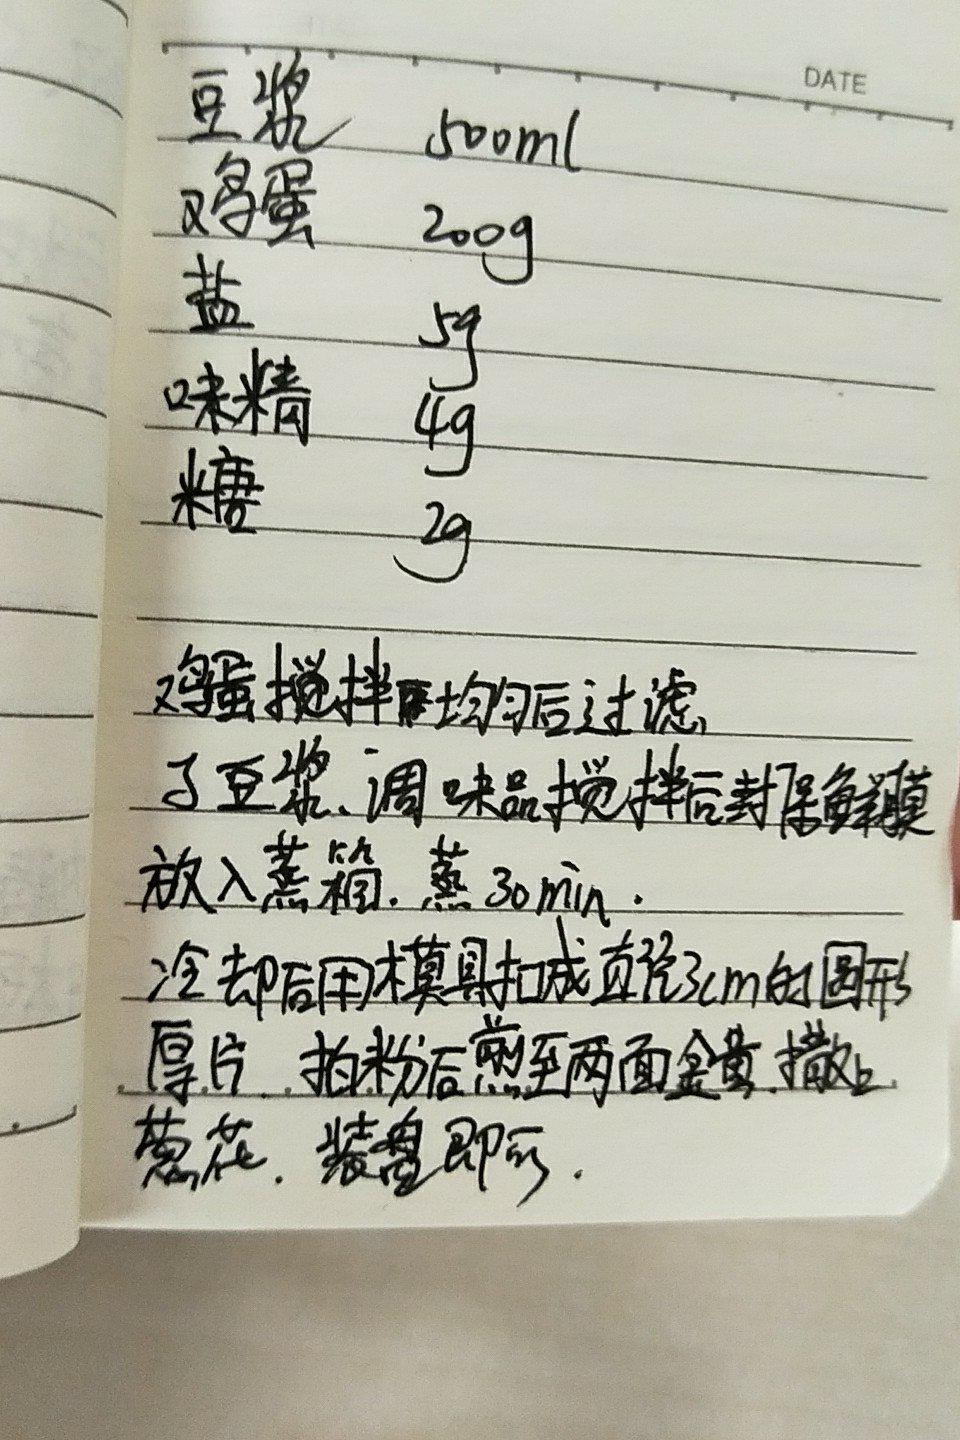 DATE
豆浆 500ml
鸡蛋 200g
盐 5g
味精 4g
糖 2g
鸡蛋搅拌均匀后过滤,
了豆浆、调味品搅拌后封保鲜膜
放入蒸箱.蒸30min.
冷却后用模具扣成直径3cm的圆形
厚片.拍粉后煎至两面金黄.撒上
葱花.装盘即可.